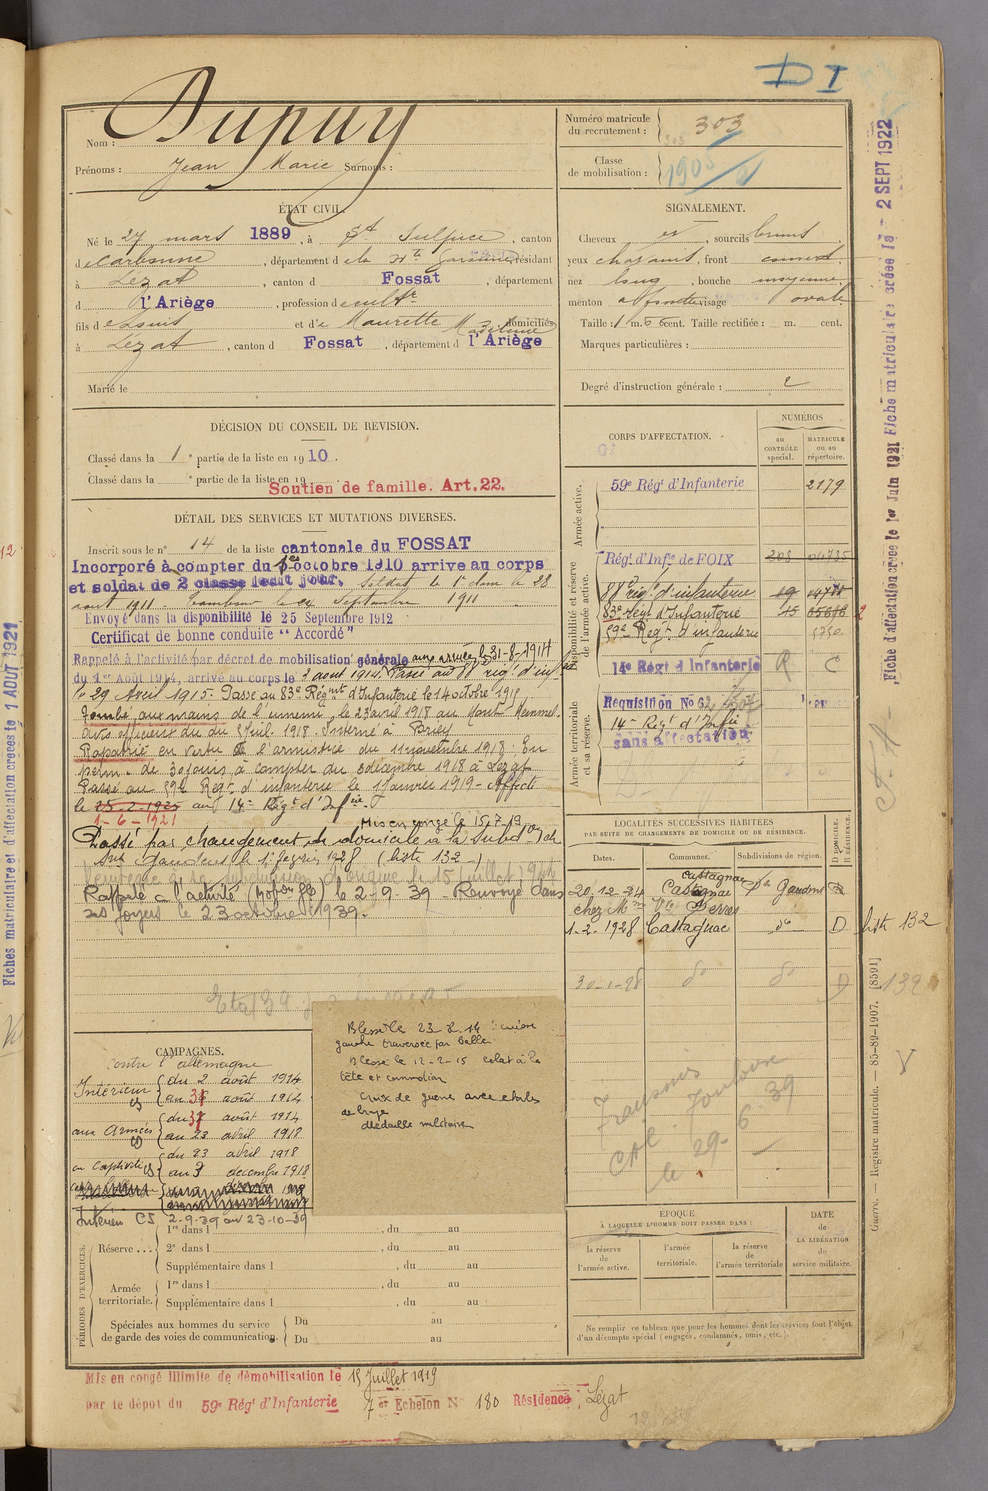 D I
Nom : Dupuy
Prénoms : Jean Marie Surnoms :
Numéro matricule du recrutement : 303
Classe de mobilisation :
ÉTAT CIVIL.
Né le 27 mars 1889, à St Sulpice, canton
d Carbonne, département d e la Hte Garonne, résidant
à Lézat, canton d Fossat, département
d l'Ariège, profession d e cultr
fils d et d'e Maurette Madeleine domiciliés
à Lézat, canton d Fossat, département d l'Ariège
Marié le
SIGNALEMENT.
Cheveux et, sourcils bruns
yeux, front couvert
nez long, bouche moyenne
menton à fossette visage ovale
Taille : 1 m. 66 cent. Taille rectifiée : m. cent.
Marques particulières :
Degré d'instruction générale : 2
DÉCISION DU CONSEIL DE REVISION.
Classé dans la 1e partie de la liste en 1910.
Classé dans la e partie de la liste en 19
Soutien de famille. Art. 22.
DÉTAIL DES SERVICES ET MUTATIONS DIVERSES.
Inscrit sous le n° 14 de la liste cantonale du FOSSAT
Incorporé à compter du 1er octobre 1910 arrive au corps
et soldat de 2 classe ledit jour. Soldat de 1e classe le 28
août 1911. Tambour le 24 Septembre 1911
Envoyé dans la disponibilité le 25 Septembre 1912
Certificat de bonne conduite "Accordé"
Rappelé à l'activité par décret de mobilisation générale aux armées le 31-8-1914
du 1er Août 1914, arrivé au corps le 2 aout 1914. Passé au 88e rég. d'inf.
le 29 Avril 1915. Passé au 83e Régmt d'Infanterie le 14 octobre 1915
Tombé aux mains de l'ennemi le 23 avril 1918 au Mont Kemmel.
Avis officieux du du 5 Juil. 1918. Interné à Briey
Rapatrié en vertu de l'armistice du 11 novembre 1918. En
perm. de 30 jours à compter du 3 décembre 1918 à Lézat
Passé au 59e Regt d'infanterie le 1 janvier 1919 - Affecté
le 25-2-1920 au 14e Régt d'Infie
1-6-1921
Mis en congé le 15.7.19
Passé par changement de domicile à la Subdon de
St Gaudens le 1er février 1928 (liste 132)
Rappelé à l'activité le 2-9-39 - Renvoyé dans
ses foyers le 23 octobre 1939.
CORPS D'AFFECTATION.
NUMÉROS
au CONTRÔLE spécial.
MATRICULE ou au répertoire.
Armée active.
59e Régt d'Infanterie 2179
Disponibilité et réserve de l'armée active.
Régt d'Infie de FOIX 208 04735
88e rég. d'infanterie 19
83e rég. d'Infanterie 15
59e Regt d'infanterie
14e Régt d'Infanterie
Armée territoriale et sa réserve.
Réquisition No 62
14e Regt d'Infie
sans affectation
LOCALITÉS SUCCESSIVES HABITÉES
PAR SUITE DE CHANGEMENTS DE DOMICILE OU DE RÉSIDENCE.
Dates. Communes. Subdivisions de région. D DOMICILE. R RÉSIDENCE.
20-12-24 Castagnac St Gaudens R
chez Mme Vve Perres
1-2-1928 Castagnac do D liste 132
do do D 132
Transmis
CAC Toulouse
le 29-6-39
CAMPAGNES.
Contre l'allemagne
Intérieur du 2 août 1914
au 31 août 1914
aux Armées du 31 août 1914
au 23 avril 1918
en captivité du 23 avril 1918
au 3 decembre 1918
Intérieur CS 2-9-39 au 23-10-39
Blessé le 23-8-14 : cuisse
gauche traversée par balle
Blessé le 12-2-15 éclat à la
tête et commotion
Croix de guerre avec étoile
de bronze
Médaille militaire
PÉRIODES D'EXERCICES.
Réserve ... 1re dans l , du au
2e dans l , du au
Supplémentaire dans l , du au
Armée territoriale. 1re dans l , du au
Supplémentaire dans l , du au
Spéciales aux hommes du service de garde des voies de communication. Du au
Du au
ÉPOQUE
À LAQUELLE L'HOMME DOIT PASSER DANS :
la réserve de l'armée active.
l'armée territoriale.
la réserve de l'armée territoriale
DATE de LA LIBÉRATION du service militaire.
Ne remplir ce tableau que pour les hommes dont les services font l'objet
d'un décompte spécial (engagés, condamnés, omis, etc.).
Mis en congé illimité de démobilisation le 15 Juillet 1919
par le dépôt du 59e Régt d'Infanterie 7er Echelon N° 180 Résidence : Lézat
Fiche d'affectation créée le 1er Juin 1921 Fiche matriculaire créée le 2 SEPT 1922
Guerre. — Registre matricule. — 85-89-1907. [8591]
Fiches matriculaire et d'affectation créées le 1 AOUT 1921